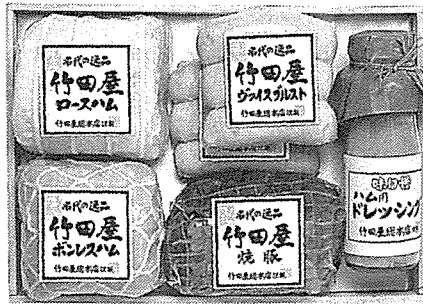 名代の逸品
竹田屋
ロースハム
竹田屋総本店謹製
名代の逸品
竹田屋
ヴァイスブルスト
竹田屋総本店謹製
名代の逸品
竹田屋
ボンレスハム
竹田屋総本店謹製
名代の逸品
竹田屋
焼豚
竹田屋総本店謹製
ハム用
ドレッシング